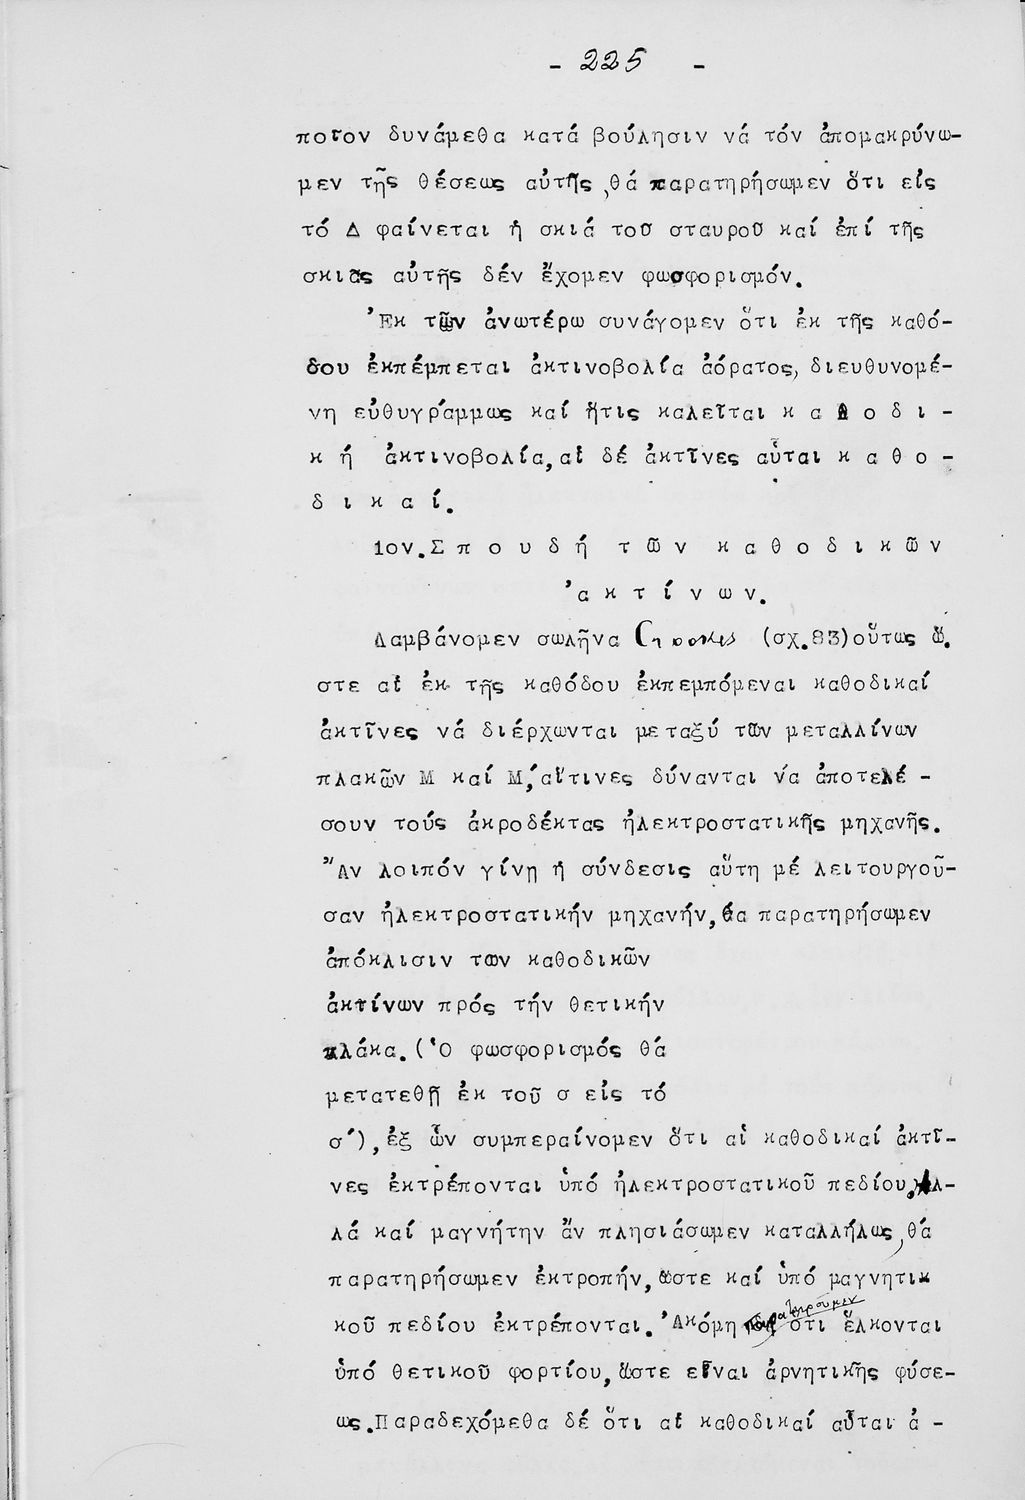 - 225 -
ποῖον δυνάμεθα κατά βούλησιν νά τόν ἀπομακρύνω-
μεν τῆς θέσεως αὐτῆς, θά παρατηρήσωμεν ὅτι εἰς
τό Δ φαίνεται ἡ σκιά τοῦ σταυροῦ καί ἐπί τῆς
σκιᾶς αὐτῆς δέν ἔχομεν φωσφορισμόν.
Ἐκ τῶν ἀνωτέρω συνάγομεν ὅτι ἐκ τῆς καθό-
δου ἐκπέμπεται ἀκτινοβολία ἀόρατος, διευθυνομέ-
νη εὐθυγράμμως καί ἥτις καλεῖται κ α θ ο δ ι -
κ ή ἀκτινοβολία, αἱ δέ ἀκτῖνες αὗται κ α θ ο -
δ ι κ α ί.
1ον. Σ π ο υ δ ή τ ῶ ν κ α θ ο δ ι κ ῶ ν
ἀ κ τ ί ν ω ν.
Λαμβάνομεν σωλῆνα Crookes (σχ.83) οὕτως ὥ.
στε αἱ ἐκ τῆς καθόδου ἐκπεμπόμεναι καθοδικαί
ἀκτῖνες νά διέρχωνται μεταξύ τῶν μεταλλίνων
πλακῶν Μ καί Μ,΄αἵτινες δύνανται νά ἀποτελέ -
σουν τούς ἀκροδέκτας ἠλεκτροστατικῆς μηχανῆς.
Ἄν λοιπόν γίνῃ ἡ σύνδεσις αὕτη μέ λειτουργοῦ-
σαν ἠλεκτροστατικήν μηχανήν, θα παρατηρήσωμεν
ἀπόκλισιν των καθοδικῶν
ἀκτίνων πρός τήν θετικήν
πλάκα. (Ὁ φωσφορισμός θά
μετατεθῇ ἐκ τοῦ σ εἰς τό
σ΄), ἐξ ὧν συμπεραίνομεν ὅτι αἱ καθοδικαί ἀκτῖ-
νες ἐκτρέπονται ὑπό ἠλεκτροστατικοῦ πεδίου, Ἀλ-
λά καί μαγνήτην ἄν πλησιάσωμεν καταλλήλως, θά
παρατηρήσωμεν ἐκτροπήν, ὥστε καί ὑπό μαγνητικ
κοῦ πεδίου ἐκτρέπονται. Ἀκόμη παρατηροῦμεν ὅτι ἕλκονται
ὑπό θετικοῦ φορτίου, ὥστε εἶναι ἀρνητικῆς φύσε-
ως. Παραδεχόμεθα δέ ὅτι αἱ καθοδικαί αὗται ἀ -